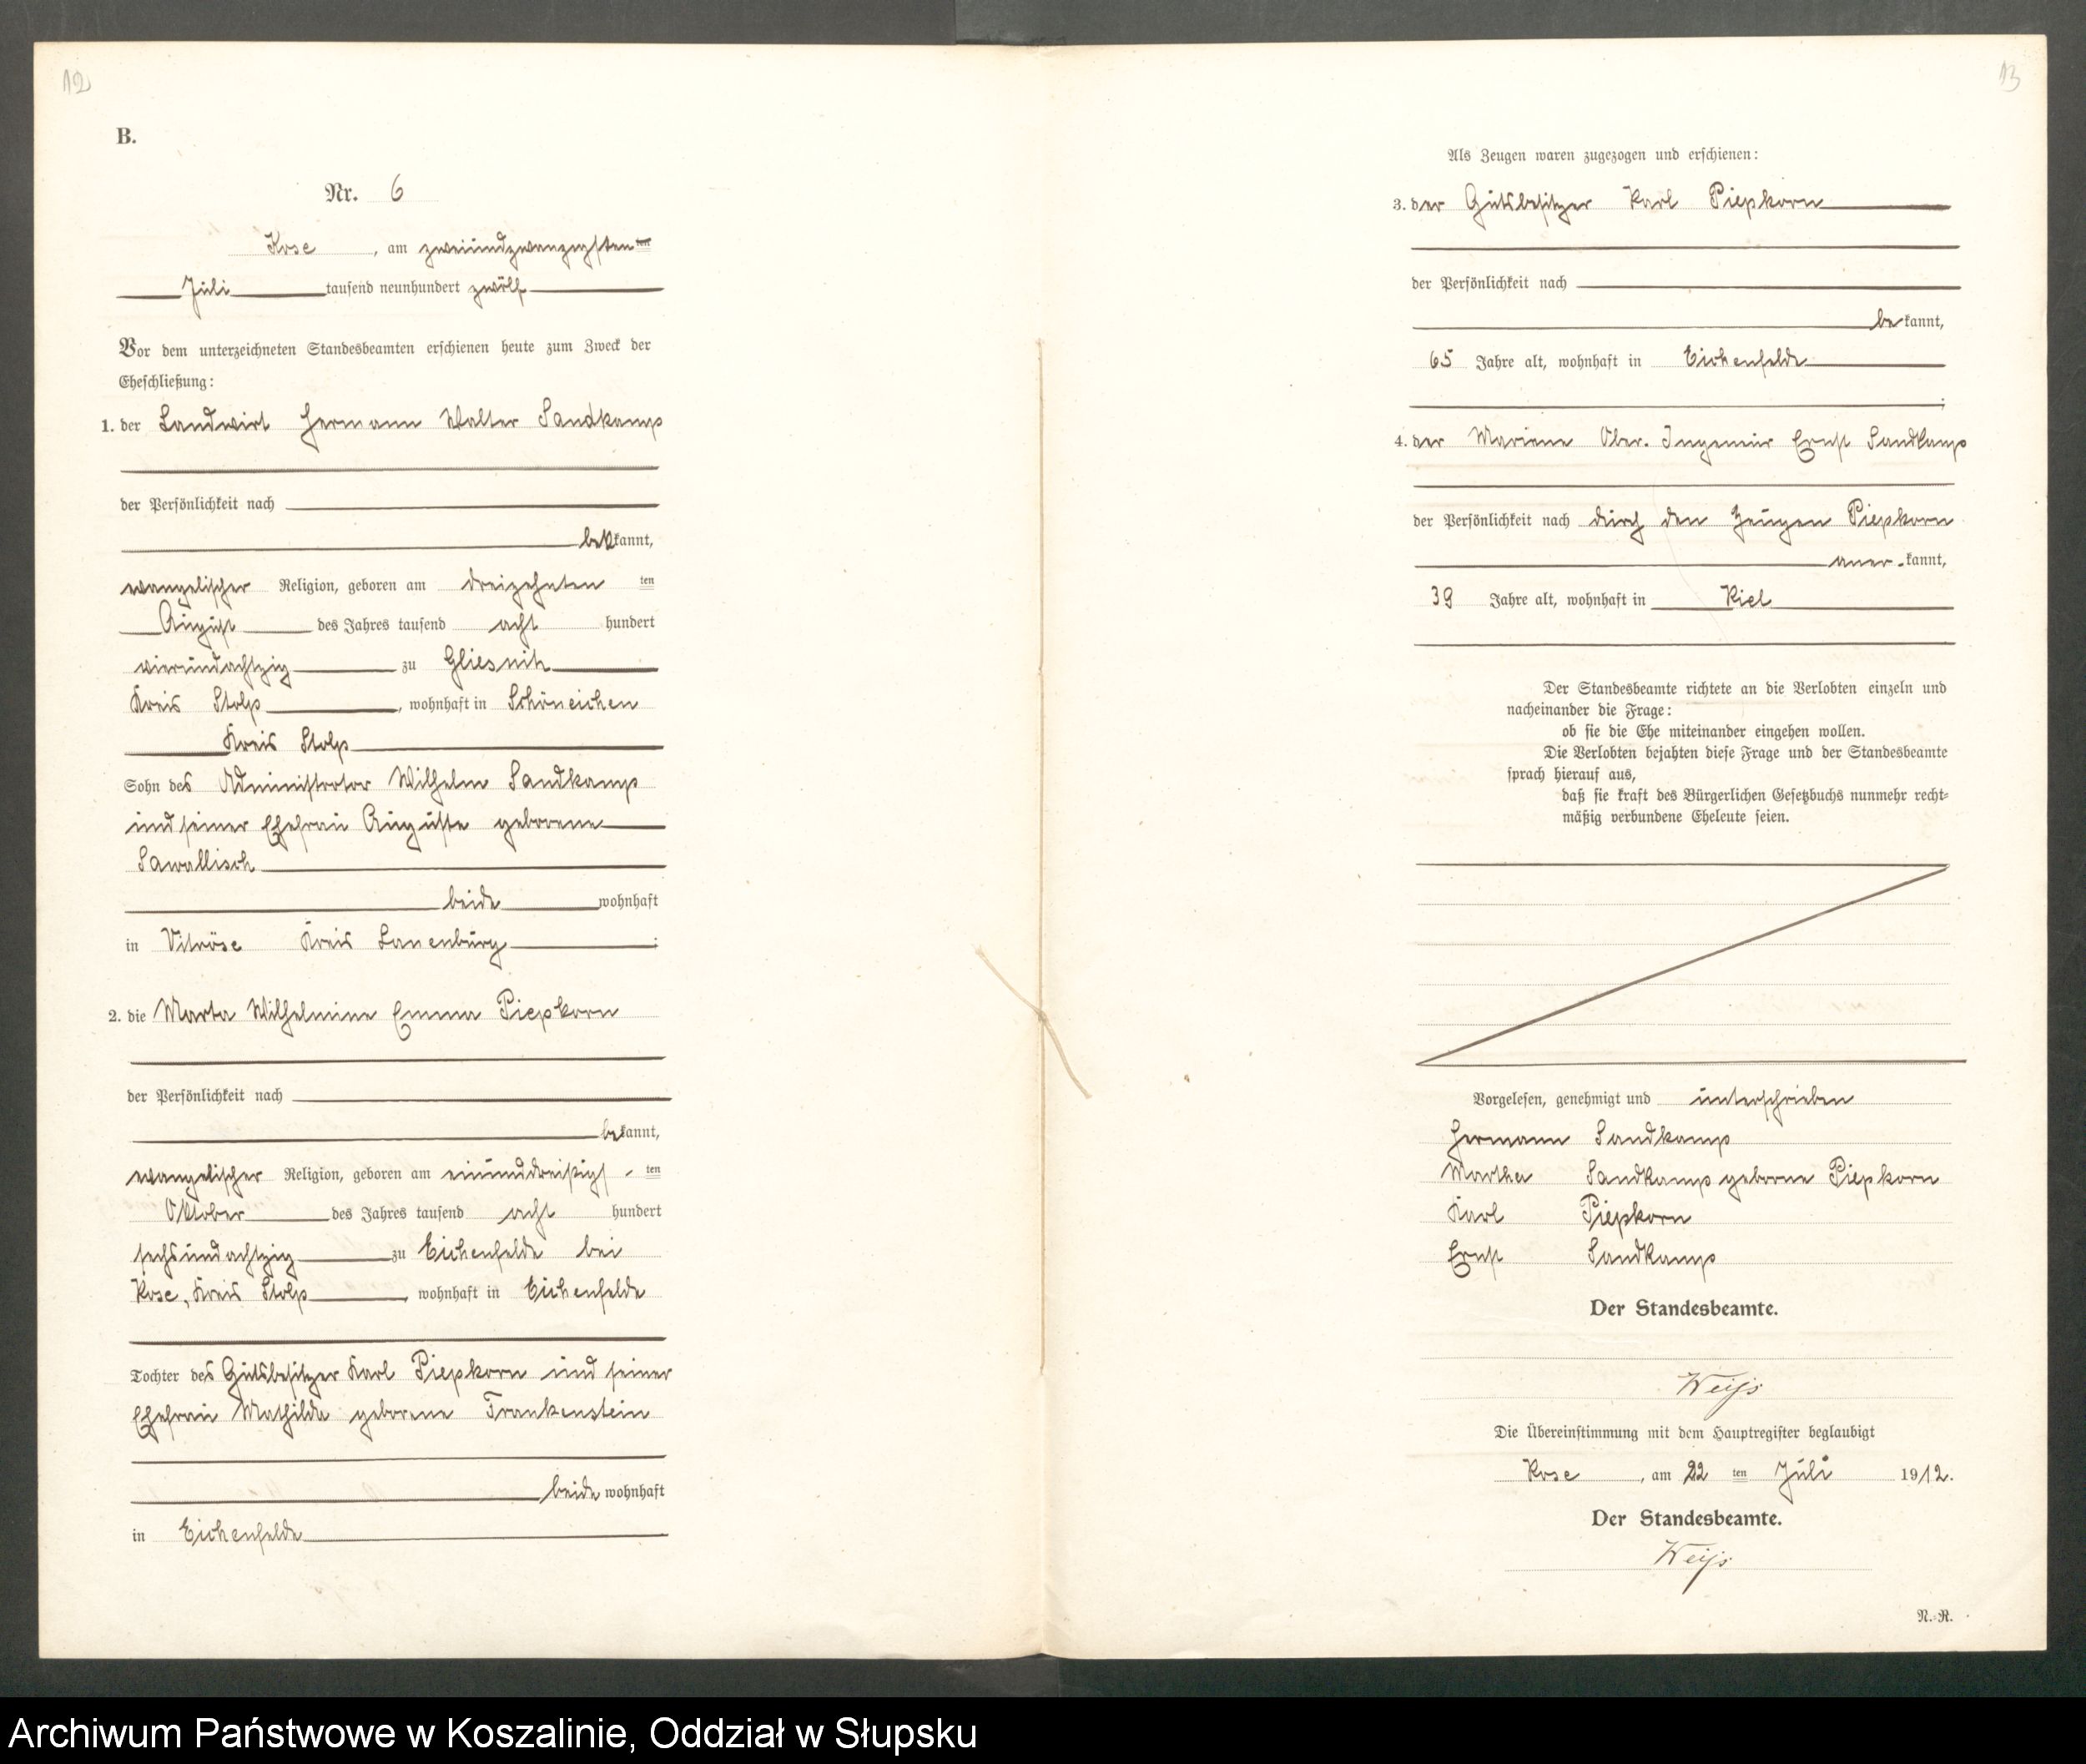 12
B.
Nr. 6
Kose, am zweiundzwanzigsten ten
Juli tausend neunhundert zwölf
Vor dem unterzeichneten Standesbeamten erschienen heute zum Zweck der
Eheschließung:
1. der Landwirt Hermann Walter Sandkamp
der Persönlichkeit nach
bekkannt,
evangelischer Religion, geboren am dreizehnten ten
August des Jahres tausend acht hundert
vierundachtzig zu Gliesnitz
Kreis Stolp, wohnhaft in Schöneichen
Kreis Stolp
Sohn des Administrator Wilhelm Sandkamp
und seiner Ehefrau Auguste geborene
Sawallisch
beide wohnhaft
in Vitröse Kreis Lauenburg;
2. die Marta Wilhelmine Emma Piepkorn
der Persönlichkeit nach
bekannt,
evangelischer Religion, geboren am einunddreißigs- ten
Oktober des Jahres tausend acht hundert
sechsundachtzig zu Eichenfelde bei
Kose, Kreis Stolp, wohnhaft in Eichenfelde
Tochter des Gutsbesitzer Karl Piepkorn und seiner
Ehefrau Mathilde geborene Frankenstein
beide wohnhaft
in Eichenfelde
13
Als Zeugen waren zugezogen und erschienen:
3. der Gutsbesitzer Karl Piepkorn
der Persönlichkeit nach
bekannt,
65 Jahre alt, wohnhaft in Eichenfelde
;
4. der Mariene Ober. Ingenieur Ernst Sandkamp
der Persönlichkeit nach durch den Zeugen Piepkorn
aner-kannt,
39 Jahre alt, wohnhaft in Kiel
Der Standesbeamte richtete an die Verlobten einzeln und
nacheinander die Frage:
ob sie die Ehe miteinander eingehen wollen.
Die Verlobten bejahten diese Frage und der Standesbeamte
sprach hierauf aus,
daß sie kraft des Bürgerlichen Gesetzbuchs nunmehr recht-
mäßig verbundene Eheleute seien.
Vorgelesen, genehmigt und unterschrieben
Hermann Sandkamp
Martha Sandkamp geborne Piepkorn
Karl Piepkorn
Ernst Sandkamp
Der Standesbeamte.
Weiß
Die Übereinstimmung mit dem Hauptregister beglaubigt
Kose, am 22 ten Juli 1912.
Der Standesbeamte.
Weiß
N.-R.
Archiwum Państwowe w Koszalinie, Oddział w Słupsku